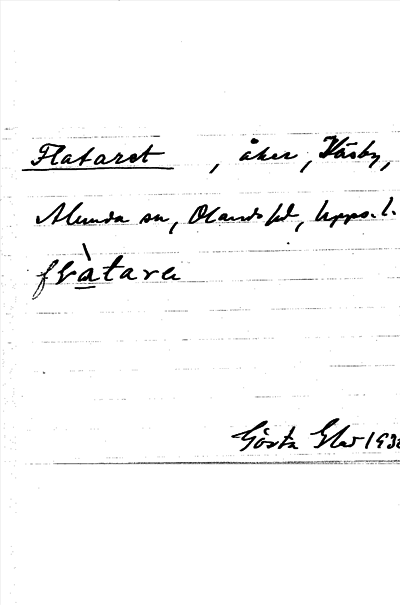 Flataret, åker, Väsby,
Almunda sn, Olands hd, Upps. l.
flàtare
Gösta Eler 193